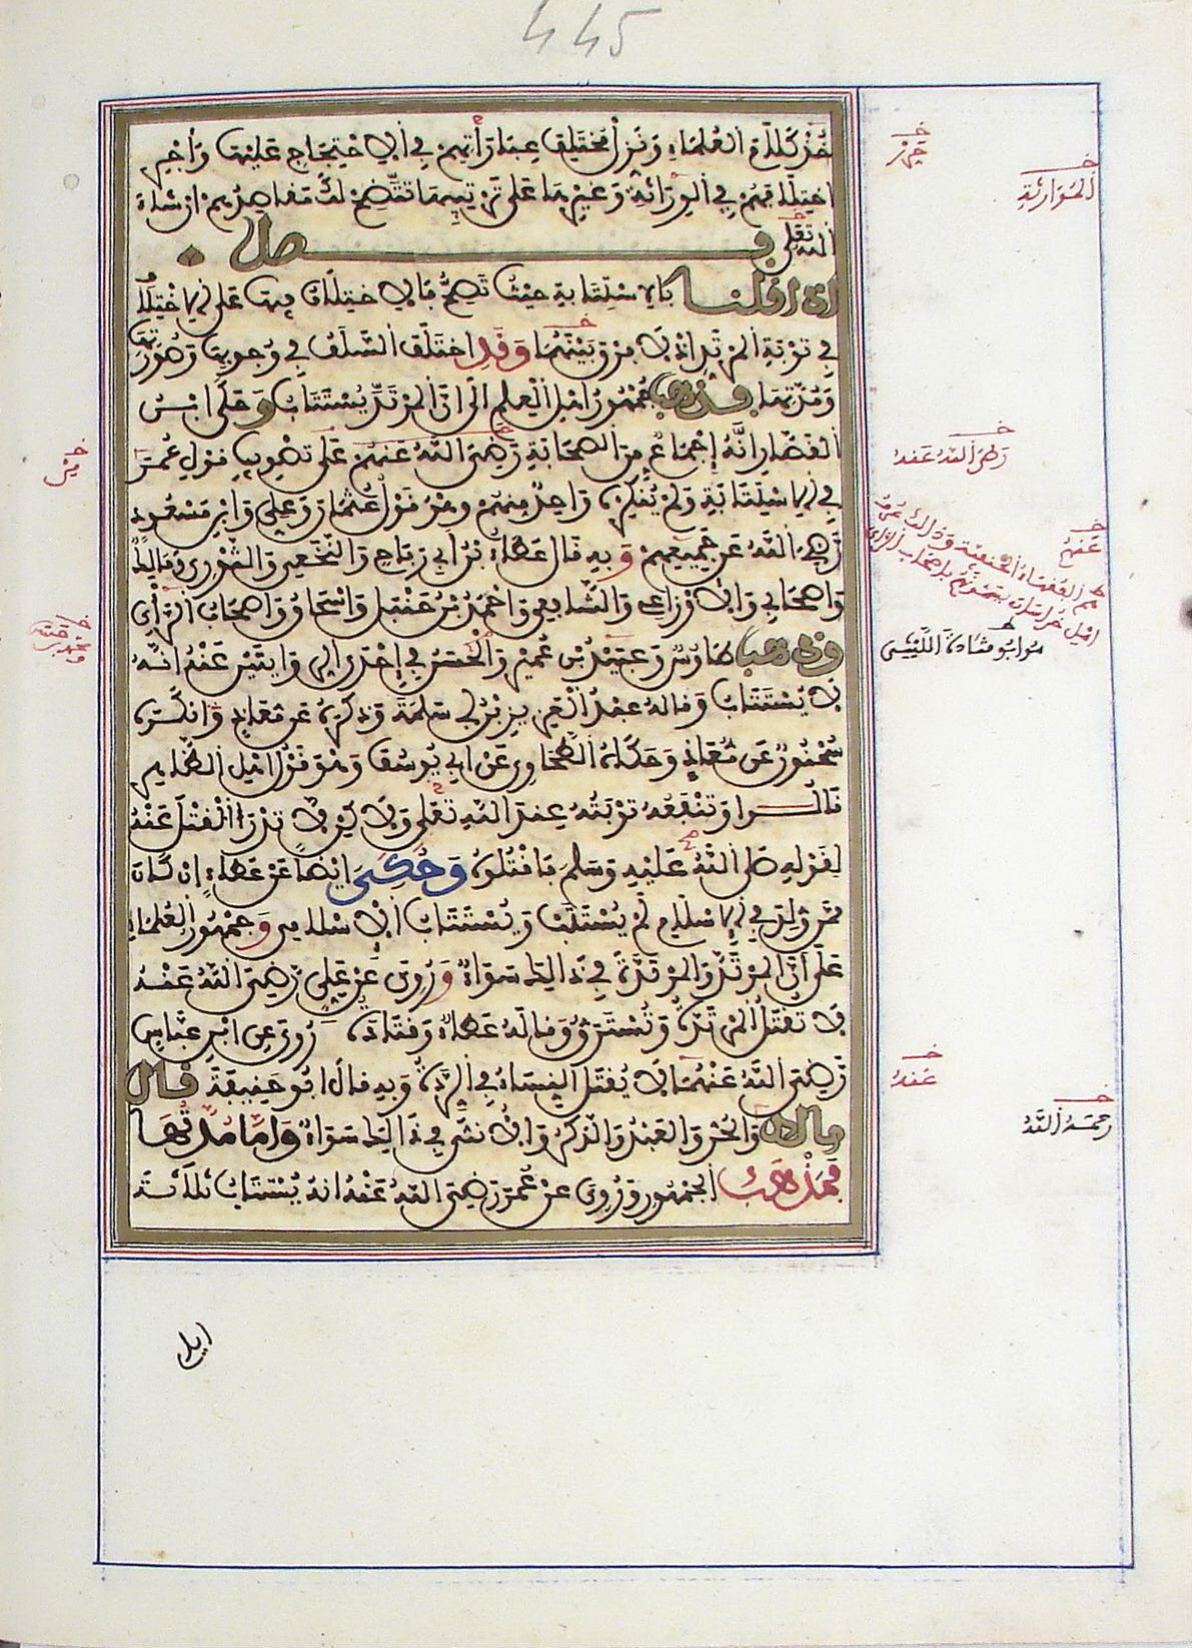 445
خذ كلام العلماء ونزل مختلف عباراتهم في الاحتجاج عليها واجر
اختلافهم في الوراثة وغيرها على ترتيبها تتضح لك مقاصدهم ان شاء
الله تعلى فصل
اذا قلنا بالاستتابة حيث تصح فالاختلاف فيها على الاختلاف
في توبة المرتد اذ لا فرق بينهما وقد اختلف السلف في وجوبها وصورتها
ومدتها فذهب جمهور اهل العلم الى ان المرتد يستتاب وحكى ابن
القصار انه إجماع من الصحابة رضي الله عنهم على تصويب قول عمر
في الاستتابة ولم ينكره واحد منهم وهو قول عثمان وعلي وابن مسعود
رضي الله عن جميعهم وبه قال عطاء بن ابي رباح والنخعي والثوري ومالك
واصحابه والاوزاعي والشافعي واحمد بن حنبل واسحاق واصحاب الرأي
وذهب طاوس وعبيد بن عمير والحسن في إحدى الروايتين عنه انه
لا يستتاب وقاله عبد العزيز بن ابي سلمة وذكره عن معاذ وانكره
سحنون عن معاذ وحكاه الطحاوي عن ابي يوسف وهو قول اهل الظاهر
قالوا وتنفعه توبته عند الله تعلى ولاكن لا تدرأ القتل عنه
لقوله صلى الله عليه وسلم فاقتلوه وحكي ايضا عن عطاء إن كان
ممن ولد في الاسلام لم يستتب ويستتاب الاسلامي وجمهور العلماء
على أن المرتد والمرتدة في ذالك سواء وروي عن علي رضي الله عنه
لا تقتل المرتدة وتسترق وقاله عطاء وقتادة وروي عن ابن عباس
رضي الله عنهما لا يقتل النساء في الردة وبه قال ابو حنيفة قال
مالك والحر والعبد والذكر والانثى في ذالك سواء واما مدتها
فمذهب الجمهور وروي عن عمر رضي الله عنه انه يستتاب ثلاثة
ايا
الموارثة
رضي الله عنه
عنهم
هو ابو قتادة الليثي
عنه
رحمه الله